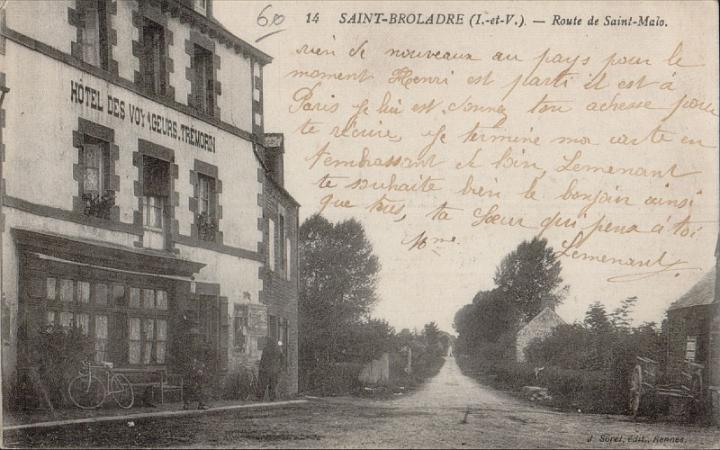 60
14 SAINT-BROLADRE (I.-et-V.). — Route de Saint-Malo.
rien de nouveaux au pays pour le
moment Henri est parti il est à
Paris je lui est donnez ton adresse pour
te récrire, je termine ma carte en
t'embrassant et bien, Lemenant
te souhaite bien le bonjour ainsi
que tous, ta Sœur qui pense à toi
Mme Lemenant
HÔTEL DES VOYAGEURS. TRÉMORIN
J. Sorel, édit., Rennes.